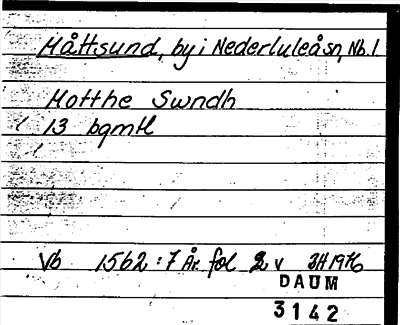 Måttsund, by i Nederluleåsn, Nb. l
Motthe Swndh
13 bqmtl
Vb 1562:7 År. fol 2 v 3H1976
DAUM
3142